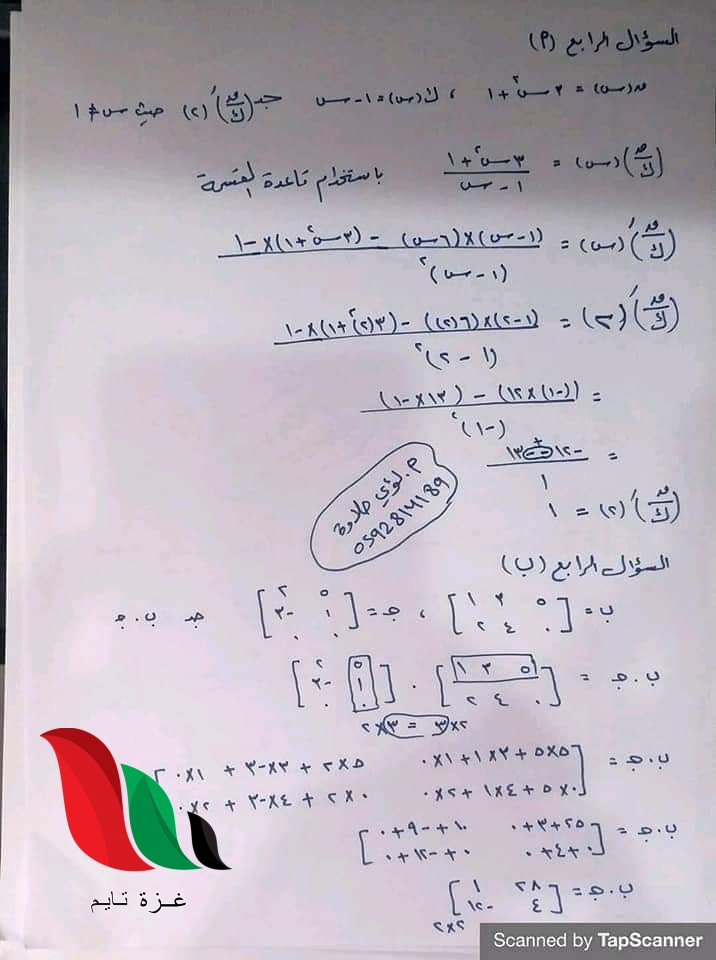 السؤال الرابع (أ)
ق(س) = ٣س² + ١ ، ك(س) = ١ - س جد (ق/ك)′(٢) حيث س ≠ ١
(ق/ك)(س) = (٣س² + ١) / (١ - س) باستخدام قاعدة القسمة
(ق/ك)′(س) = ((١ - س)×(٦س) - (٣س² + ١)×-١) / (١ - س)²
(ق/ك)′(٢) = ((١ - ٢)×(٦(٢)) - (٣(٢)² + ١)×-١) / (١ - ٢)²
= ((-١)×١٢) - (١٣×-١) / (-١)²
= -١٢ - -١٣ / ١
+
(ق/ك)′(٢) = ١
م. لؤي حلاوة
0592814189
السؤال الرابع (ب)
ب = [٥ ٣ ١ ; ٠ ٤ ٢] ، جـ = [٥ ٢ ; ١ -٣ ; ٠ ٠] جد ب . جـ
ب . جـ = [٥ ٣ ١ ; ٠ ٤ ٢] . [٥ ٢ ; ١ -٣ ; ٠ ٠]
٢×٣ = ٣×٢
ب . جـ = [٥×٥ + ٣×١ + ١×٠ ٥×٢ + ٣×-٣ + ١×٠
٠×٥ + ٤×١ + ٢×٠ ٠×٢ + ٤×-٣ + ٢×٠
ب . جـ = [٢٥+٣+٠ ١٠+-٩+٠
٠+٤+٠ ٠+-١٢+٠]
ب . جـ = [٢٨ ١
٤ -١٢]
٢×٢
غزة تايم
Scanned by TapScanner